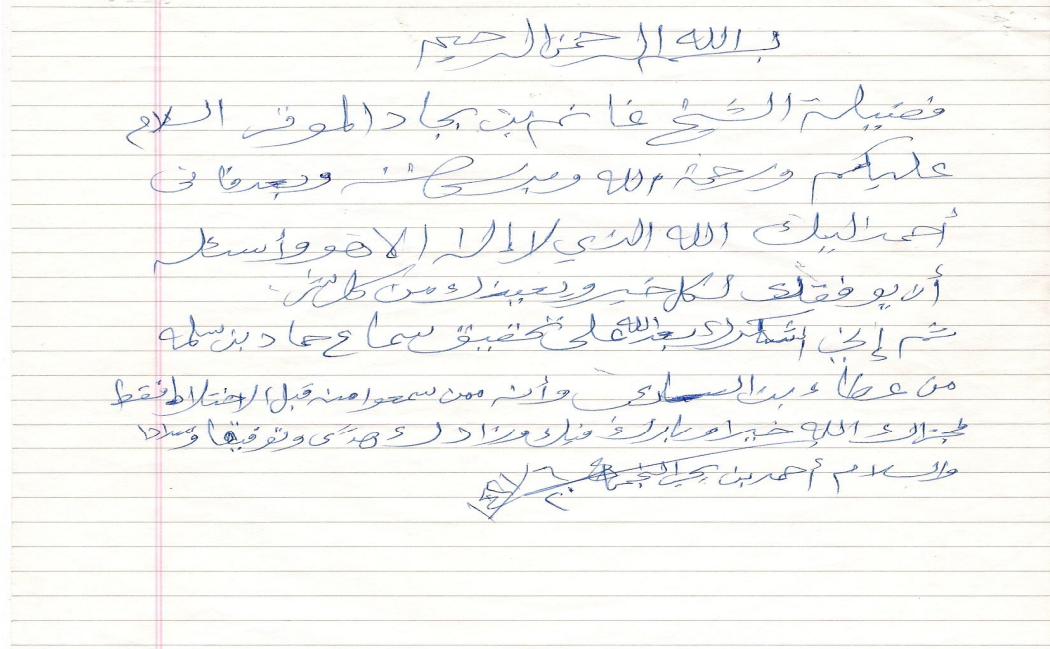 بسم الله الرحمن الرحيم
فضيلة الشيخ غانم بن بجاد الموقر السلام
عليكم ورحمة الله وبركاته وبعد فإني
أحمد إليك الله الذي لا إله إلا هو وأسئله
أن يوفقك لكل خير ويعيذك من كل شر.
ثم إني أشكرك بعد الله على تحقيق سماع حماد بن سلمه
من عطاء بن السائب وأنه ممن سمعوا منه قبل الاختلاط فقط
فجزاك الله خيرا وبارك فيك وزادك هدى وتوفيقا وسدادا
والسلام أحمد بن يحي النجمي